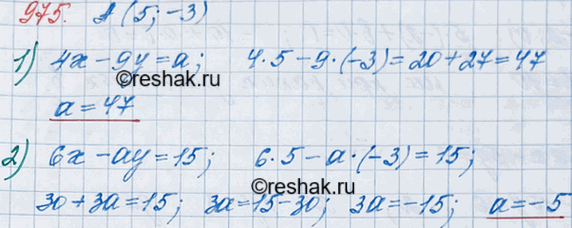 975. A (5; -3)
1) 4x - 9y = a; 4·5 - 9·(-3) = 20 + 27 = 47
©reshak.ru ©reshak.ru
a = 47
2) 6x - ay = 15; 6·5 - a·(-3) = 15;
©reshak.ru ©reshak.ru
30 + 3a = 15; 3a = 15 - 30; 3a = -15; a = -5